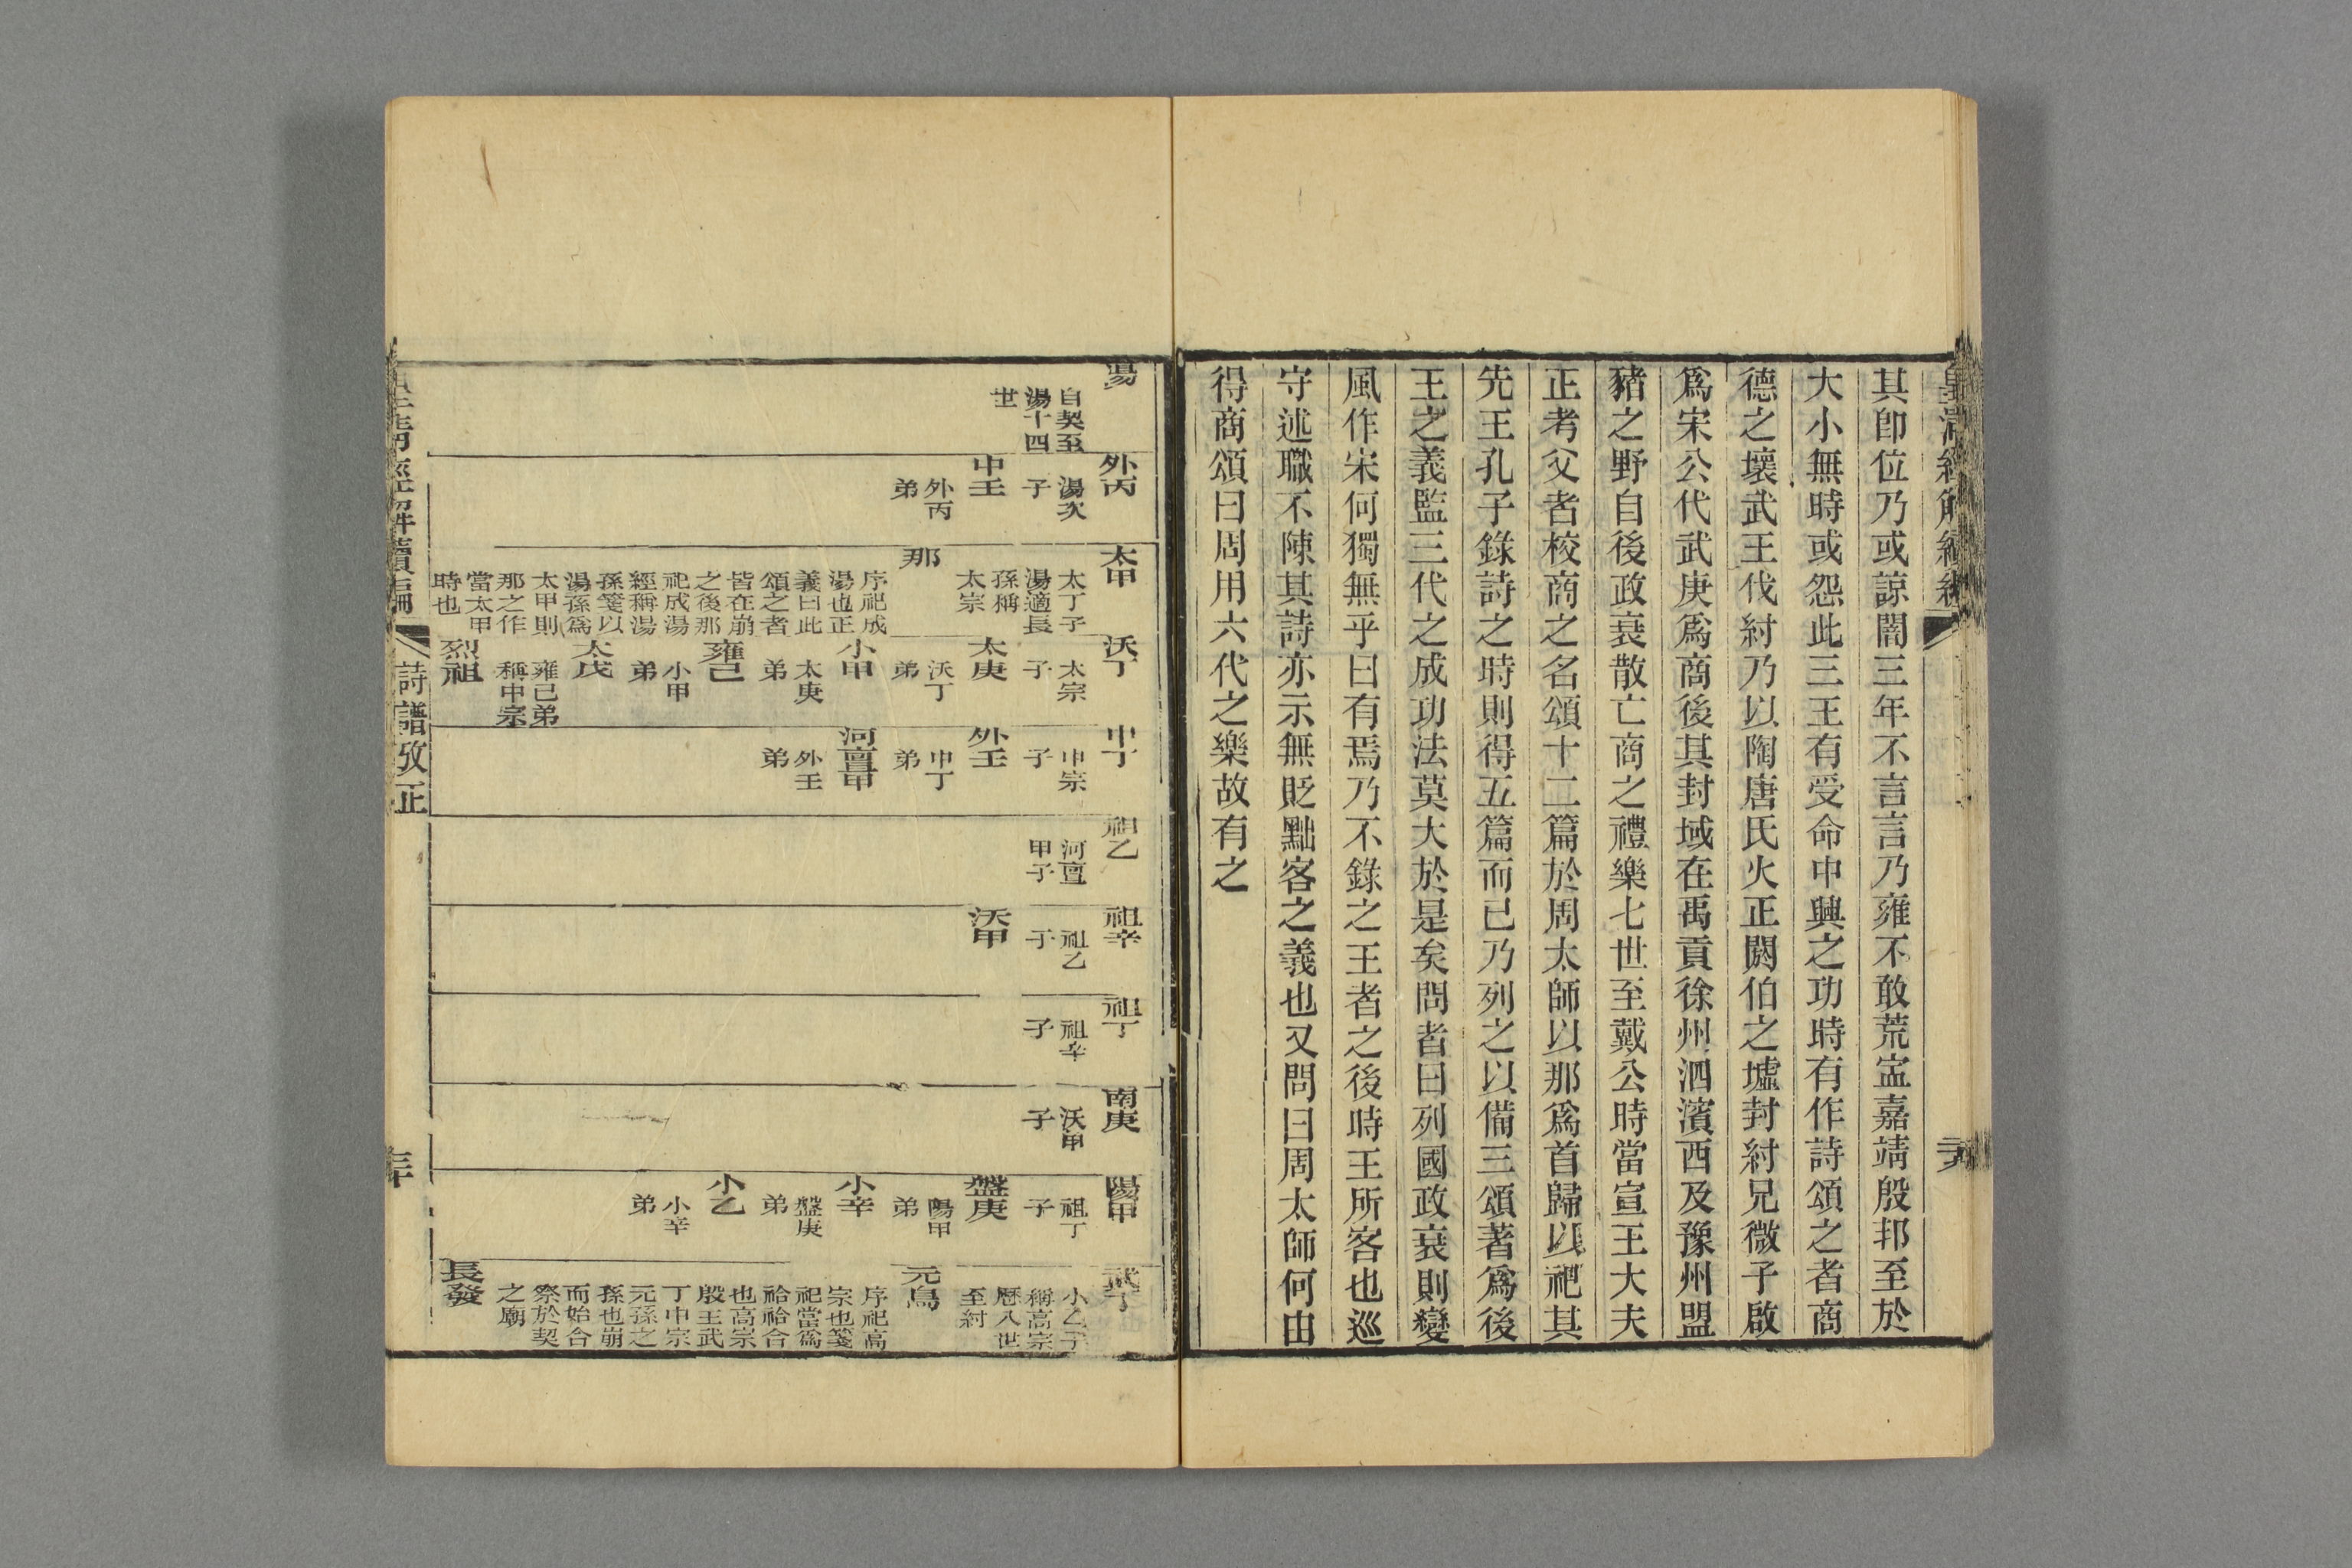 皇清經解續編
其卽位乃或諒闇三年不言言乃雍不敢荒寍嘉靖殷邦至於
大小無時或怨此三王有受命中興之功時有作詩頌之者商
德之壞武王伐紂乃以陶唐氏火正閼伯之墟封紂兄微子啟
爲宋公代武庚爲商後其封域在禹貢徐州泗濱西及豫州盟
豬之野自後政衰散亡商之禮樂七世至戴公時當宣王大夫
正考父者校商之名頌十二篇於周太師以那爲首歸以祀其
先王孔子錄詩之時則得五篇而已乃列之以備三頌著爲後
王之義監三代之成功法莫大於是矣問者曰列國政衰則變
風作宋何獨無乎曰有焉乃不錄之王者之後時王所客也巡
守述職不陳其詩亦示無貶黜客之義也又問曰周太師何由
得商頌曰周用六代之樂故有之
湯
自契至
湯十四
世
外丙
湯次
子
中壬
外丙
弟
太甲
太丁子
湯適長
孫稱
太宗
那
序祀成
湯也正
義曰此
頌之者
皆在崩
之後那
祀成湯
經稱湯
孫箋以
湯孫爲
太甲則
那之作
當太甲
時也
沃丁
太宗
子
太庚
沃丁
弟
小甲
太庚
弟
雍己
小甲
弟
太戊
雍己弟
稱中宗
烈祖
中丁
中宗
子
外壬
中丁
弟
河亶甲
外壬
弟
祖乙
河亶
甲子
祖辛
祖乙
子
沃甲
祖丁
祖辛
子
南庚
沃甲
子
陽甲
祖丁
子
盤庚
陽甲
弟
小辛
盤庚
弟
小乙
小辛
弟
武丁
小乙子
稱高宗
歷八世
至紂
元鳥
序祀高
宗也箋
祀當爲
祫祫合
也高宗
殷王武
丁中宗
元孫之
孫也崩
而始合
祭於契
之廟
長發
詩譜攷正
三十